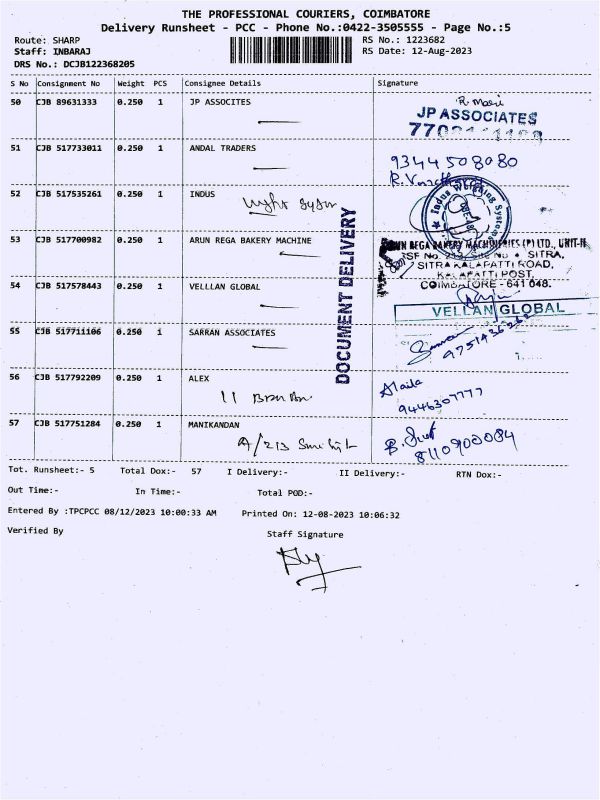 THE PROFESSIONAL COURIERS, COIMBATORE
Delivery Runsheet - PCC - Phone No.:0422-3505555 - Page No.:5
Route: SHARP RS No.: 1223682
Staff: INBARAJ RS Date: 12-Aug-2023
DRS No.: DCJB122368205
S No Consignment No Weight PCS Consignee Details Signature
50 CJB 89631333 0.250 1 JP ASSOCITES
JP ASSOCIATES
51 CJB 517733011 0.250 1 ANDAL TRADERS
9344508080
52 CJB 517535261 0.250 1 INDUS
Indus Weighing Systems
53 CJB 517700982 0.250 1 ARUN REGA BAKERY MACHINE
REGA BAKERY MACHINERIES (P) LTD., UNIT-II
SITRA,
SITRA KALAPATTI ROAD,
KALAPATTI POST,
COIMBATORE - 641 048.
54 CJB 517578443 0.250 1 VELLLAN GLOBAL
VELLAN GLOBAL
DOCUMENT DELIVERY
55 CJB 517711106 0.250 1 SARRAN ASSOCIATES
9751436262
56 CJB 517792209 0.250 1 ALEX
9446307777
57 CJB 517751284 0.250 1 MANIKANDAN
8110900084
Tot. Runsheet:- 5 Total Dox:- 57 I Delivery:- II Delivery:- RTN Dox:-
Out Time:- In Time:- Total POD:-
Entered By :TPCPCC 08/12/2023 10:00:33 AM Printed On: 12-08-2023 10:06:32
Verified By Staff Signature